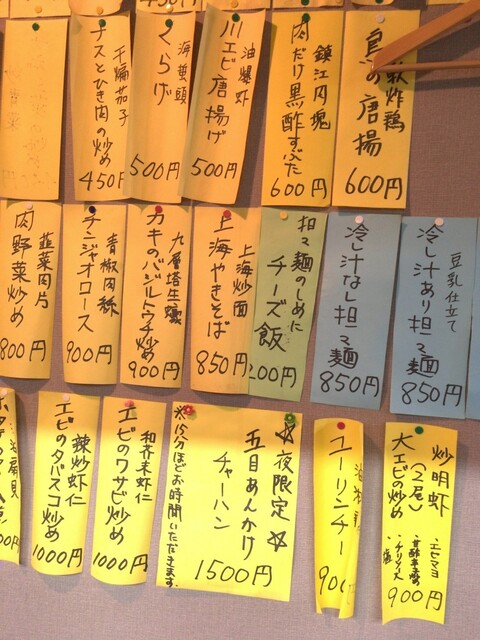 炸鶏
鳥の唐揚
600円
鎮江肉塊
肉だけ黒酢すぶた
600円
油爆蝦
川エビ唐揚げ
500円
海蜇頭
くらげ
500円
干煸茄子
ナスとひき肉の炒め
450円
豆乳仕立て
冷し汁あり担々麺
850円
冷し汁なし担々麺
850円
担々麺のしめに
チーズ飯
200円
上海炒面
上海やきそば
850円
九層塔生蠔
カキのバジルトウチ炒め
900円
青椒肉絲
チンジャオロース
900円
韮菜肉片
肉野菜炒め
800円
炒明蝦
大エビの炒め
(2尾)
・エビマヨ
・チリソース
900円
ユーリンチー
900
☆夜限定☆
五目あんかけ
チャーハン
1500円
※15分ほどお時間いただきます。
和芥末蝦仁
エビのワサビ炒め
1000円
辣炒蝦仁
エビのタバスコ炒め
1000円
扇貝
00円